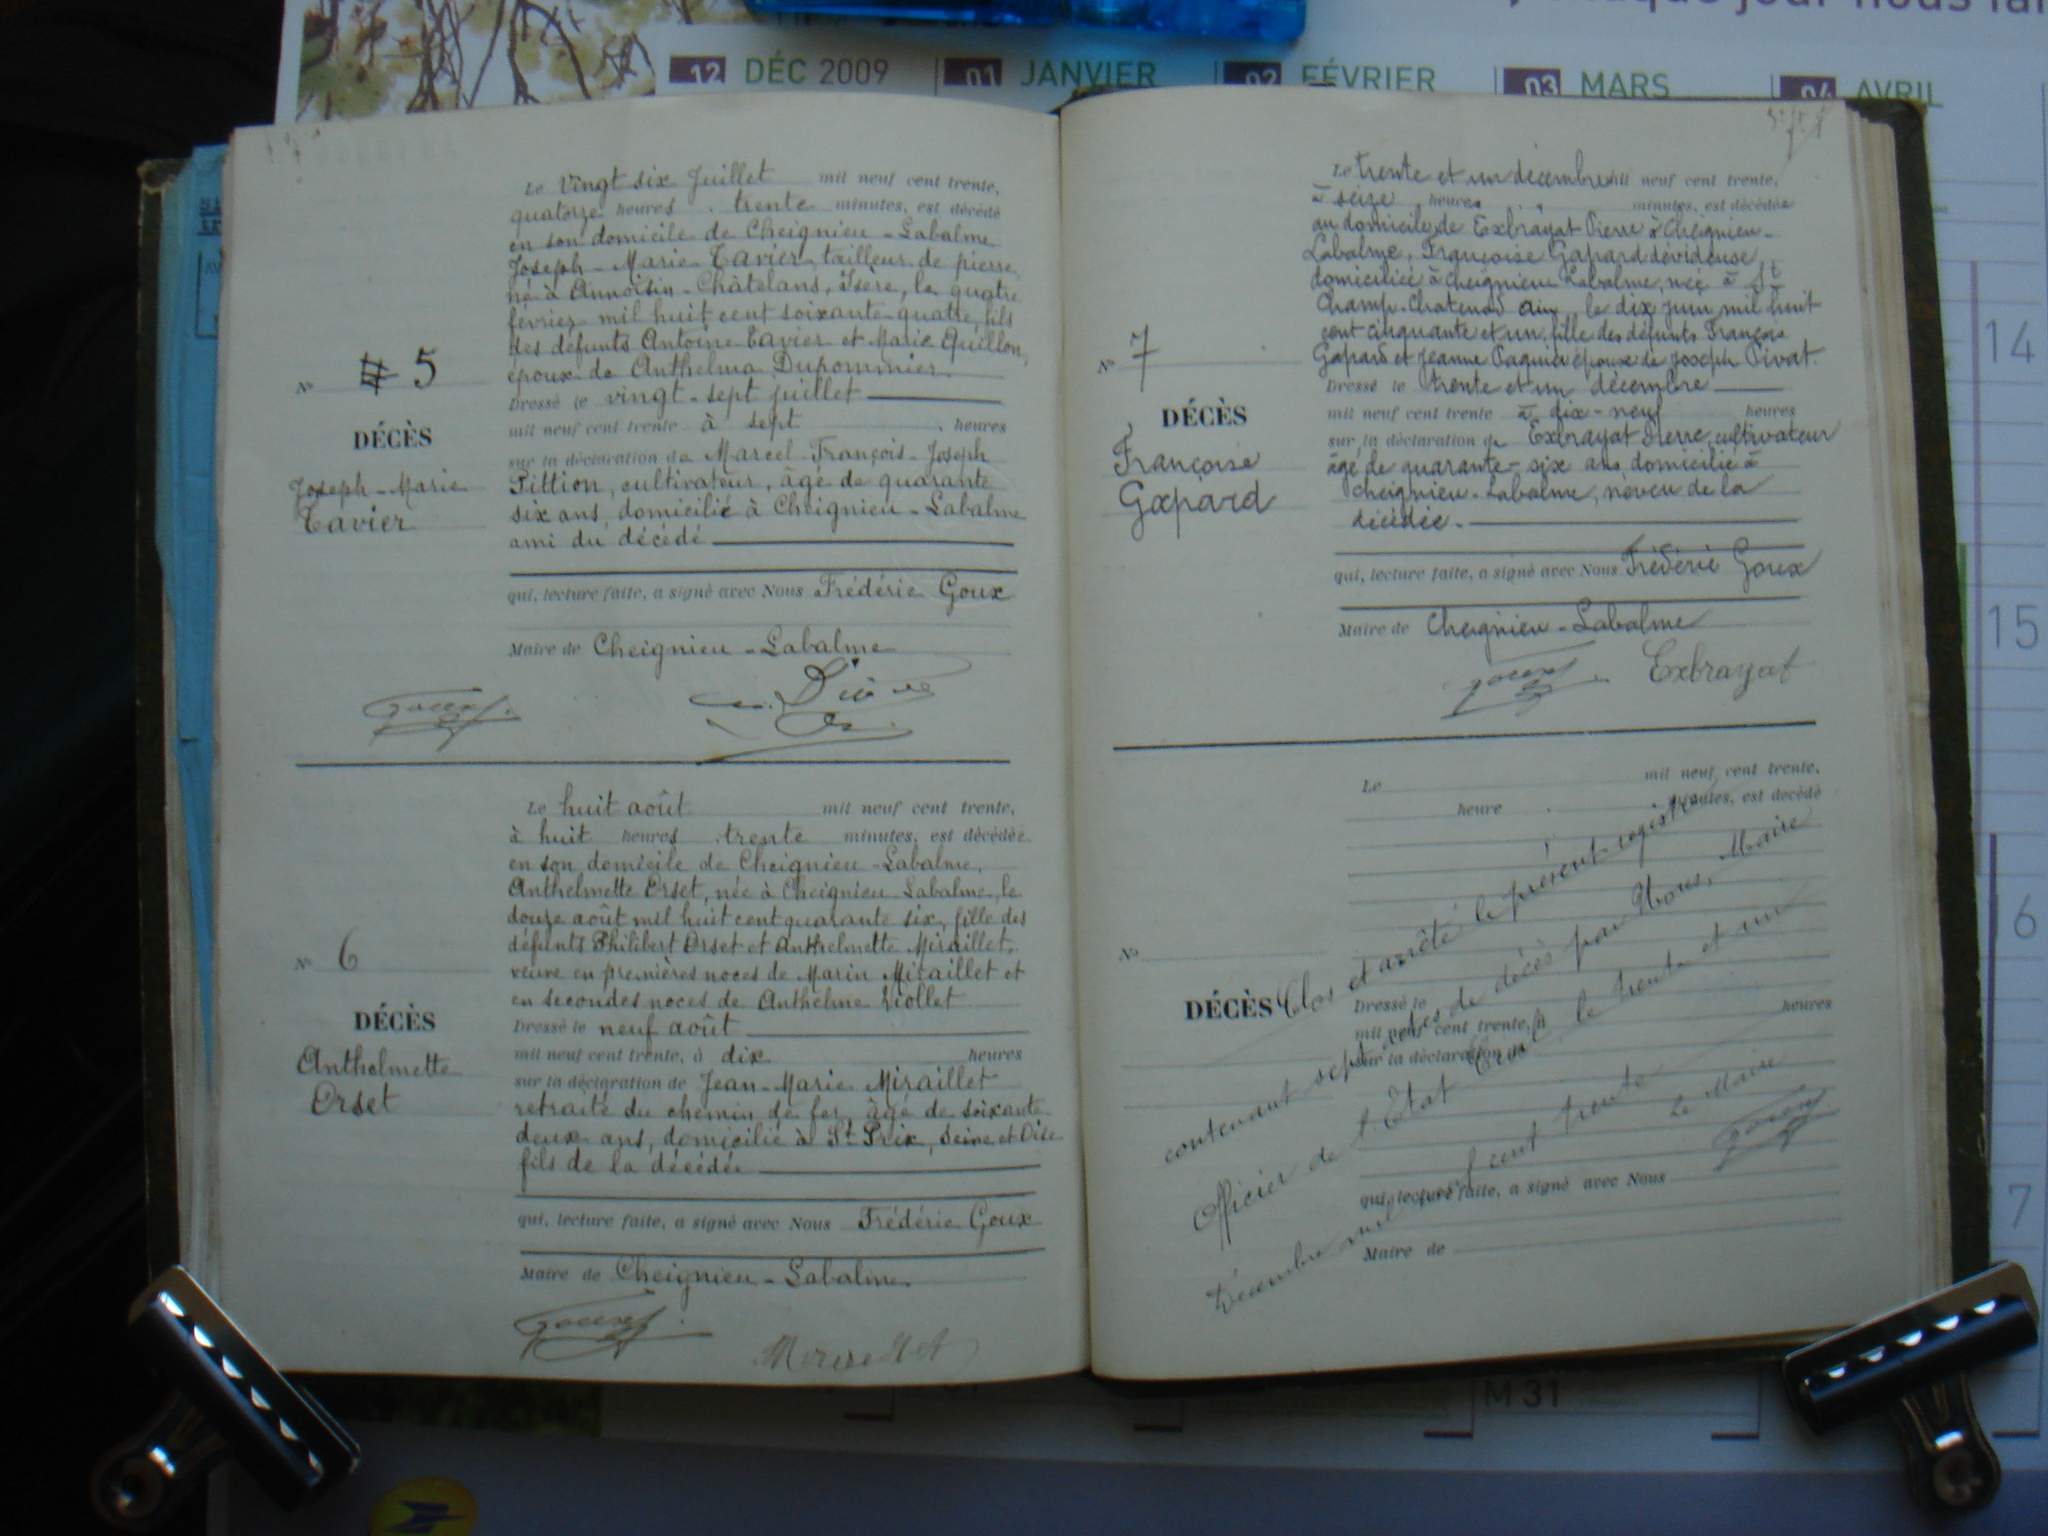 chaque jour nous fa
12 DÉC 2009
01 JANVIER
02 FÉVRIER
03 MARS
04 AVRIL
Le Vingt six Juillet mil neuf cent trente,
quatorze heures trente minutes, est décédé
en son domicile de Cheignieu-Labalme
Joseph-Marie Tavier, tailleur de pierre,
né à Annoisin-Châtelans, Isère, le quatre
février mil huit cent soixante-quatre, fils
des défunts Antoine Tavier et Marie Quillon,
époux de Anthelma Dupommier.
N° 5
Dressé le vingt-sept juillet
DÉCÈS
mil neuf cent trente à sept heures
sur la déclaration de Marcel François-Joseph
Joseph-Marie
Tavier
Pittion, cultivateur, âgé de quarante
six ans, domicilié à Cheignieu-Labalme
ami du décédé
qui, lecture faite, a signé avec Nous Frédéric Goux
Maire de Cheignieu-Labalme
Goux
Le huit août mil neuf cent trente,
à huit heures trente minutes, est décédée
en son domicile de Cheignieu-Labalme,
Anthelmette Orset, née à Cheignieu-Labalme, le
douze août mil huit cent quarante six, fille des
défunts Philibert Orset et Anthelmette Miraillet,
veuve en premières noces de Marin Miraillet et
en secondes noces de Anthelme Viollet
N° 6
Dressé le neuf août
DÉCÈS
mil neuf cent trente, à dix heures
Anthelmette
Orset
sur la déclaration de Jean-Marie Miraillet
retraité du chemin de fer, âgé de soixante
deux ans, domicilié à St Prix, Seine et Oise
fils de la décédée
qui, lecture faite, a signé avec Nous Frédéric Goux
Maire de Cheignieu-Labalme
Goux
Miraillet
Le trente et un décembre mil neuf cent trente,
à seize heures minutes, est décédée
au domicile de Exbrayat Pierre à Cheignieu-
Labalme, Françoise Gaspard dévideuse,
domiciliée à Cheignieu Labalme, née à St
Champ-Chatenod Ain, le dix juin mil huit
cent cinquante et un, fille des défunts François
Gapard et Jeanne Paquier époux de Joseph Pivat.
N° 7
Dressé le trente et un décembre
DÉCÈS
mil neuf cent trente à dix-neuf heures
Françoise
Gaspard
sur la déclaration de Exbrayat Pierre, cultivateur
âgé de quarante-six ans, domicilié à
Cheignieu-Labalme, neveu de la
décédée.
qui, lecture faite, a signé avec Nous Frédéric Goux
Maire de Cheignieu-Labalme
Goux Exbrayat
Le mil neuf cent trente,
heure minutes, est décédé
N°
DÉCÈS
Dressé le
mil neuf cent trente, à heures
sur la déclaration de
qui, lecture faite, a signé avec Nous
Maire de
Clos et arrêté le présent registre
contenant sept actes de décès par Nous, Maire
Officier de l'État Civil, le trente et un
Décembre mil neuf cent trente
Le Maire
Goux
14
15
6
7
M 31